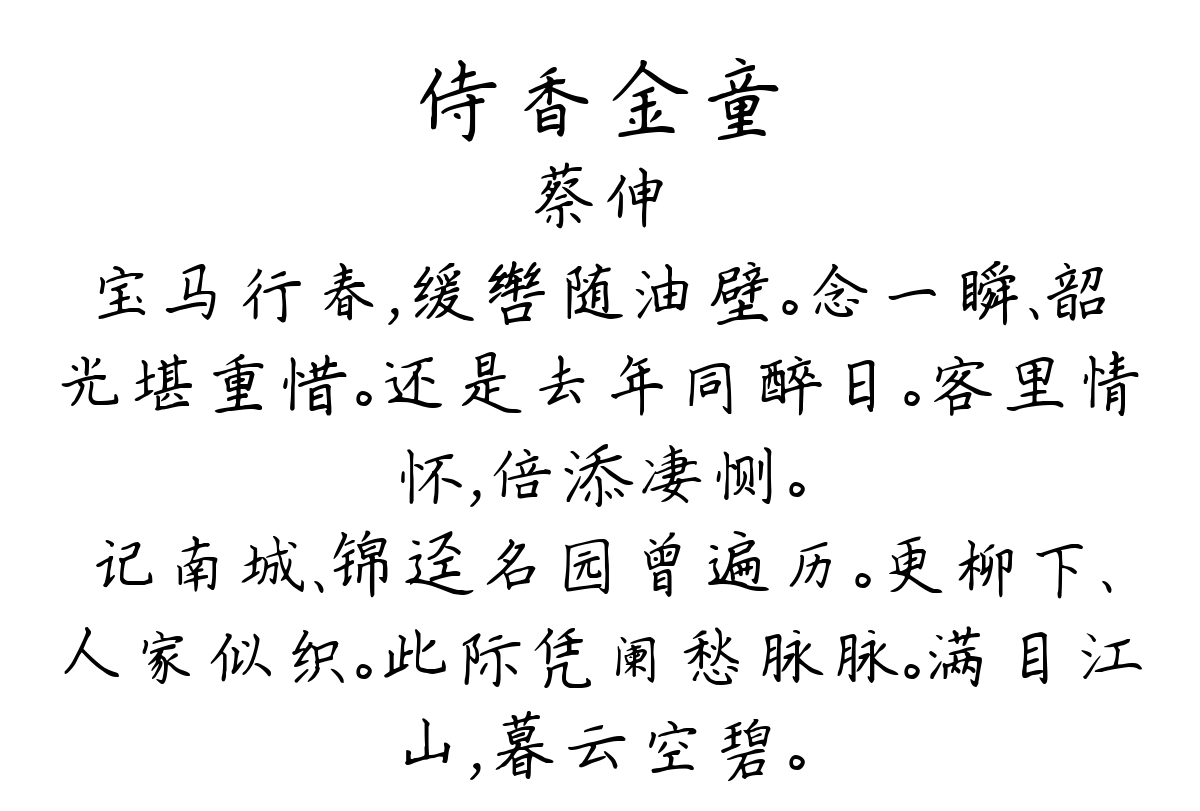 侍香金童
蔡伸
宝马行春,缓辔随油壁。念一瞬、韶
光堪重惜。还是去年同醉日。客里情
怀,倍添凄恻。
记南城、锦迳名园曾遍历。更柳下、
人家似织。此际凭阑愁脉脉。满目江
山,暮云空碧。